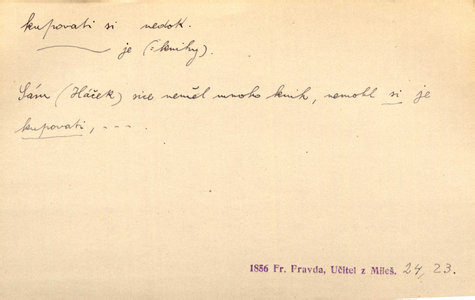 kupovati si nedok.
je (: knihy).
Sám (Háček) sice neměl mnoho knih, nemohl si je
kupovati, ---.
1856 Fr. Pravda, Učitel z Mileš. 24, 23.